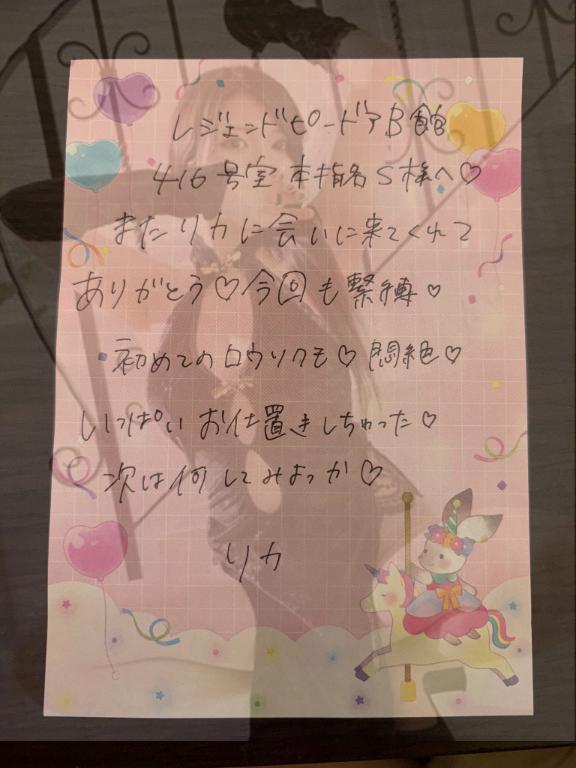 レジェンドピードアB館
416号室 本指名S様へ♡
またリカに会いに来てくれて
ありがとう♡今回も緊縛♡
初めてのロウソクも♡悶絶♡
いっぱいお仕置きしちゃった♡
次は何してみよっか♡
リカ